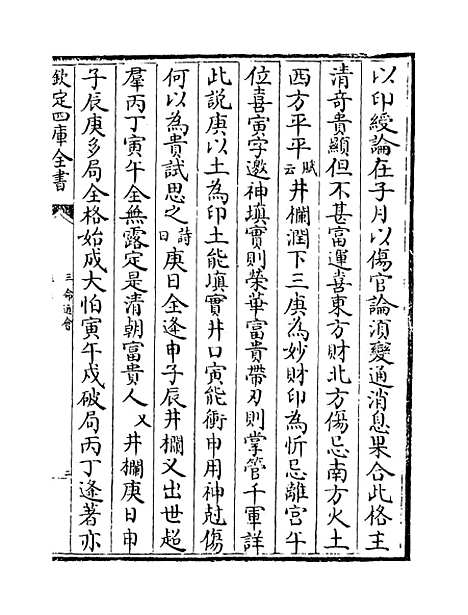 以印綬論在子月以傷官論須變通消息果合此格主
清竒貴顯但不甚富運喜東方財北方傷忌南方火土
西方平平賦云井欄潤下三庚為妙財印為忻忌離宮午
位喜寅字邀神填實則榮華富貴帶刃則掌管千軍詳
此説庚以土為印土能填實井口寅能衝申用神尅傷
何以為貴試思之詩曰庚日全逢申子辰井欄叉出世超
羣丙丁寅午全無露定是清朝富貴人又井欄庚日申
子辰庚多局全格始成大怕寅午戍破局丙丁逢著亦
欽定四庫全書
三命通㑹